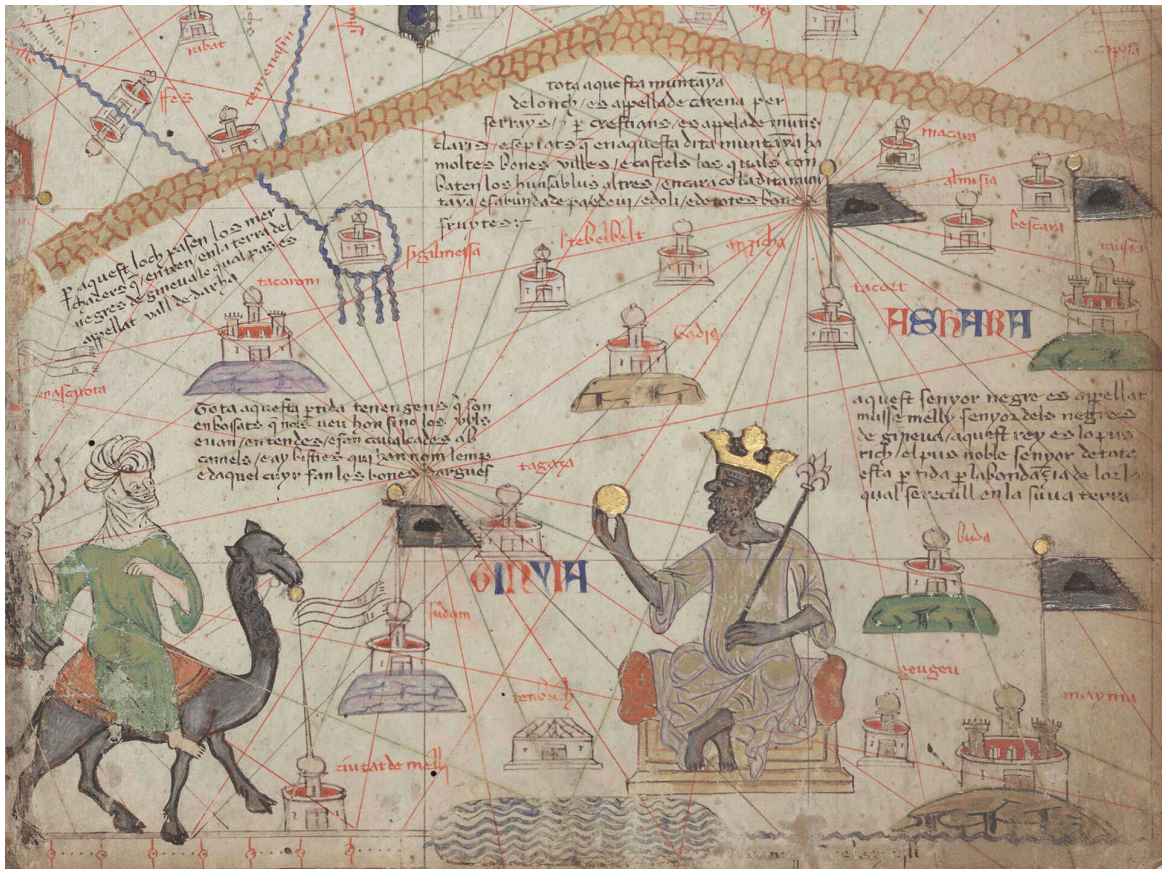 rabat
fes
tota aquesta muntāya
de lonch / es apellade carena per
serrayns / y p crestians / es appelade muntis
claris / e sepiats q en aquesta dita muntāya ha
moltes bones villes / e castels los quals con
baten los huns ab lus altres / encara co la dita mun
tāya es abunda de pa e de vi / e doli / e de totes bones
fruytes :~
macara
bescara
p aquest loch pasen los mer
chaders q entren / en la terra del
negres de gineva lo qual pas es
appellat vall de darha
tacoroni
sigilmessa
tacort
ASHABA
Tota aquesta ptida tenen gens q son
enbosats q nols veu hon sino los uyls
e van / en tendes / e fan cavalcades ab
camels / e ay bisties qui han nom lemp
e daquel cuyr fan les bones dargues
aquest senyor negre es apellat
musse melly senyor dels negres
de gineua / aquest rey es lo pus
rich / el pus noble senyor de tota
esta ptida p labondāsia de lor lo
qual se recull en la suua terra
tagaza
buda
GINYIA
sudam
tenbuch
geugeu
mayma
ciutat de melly